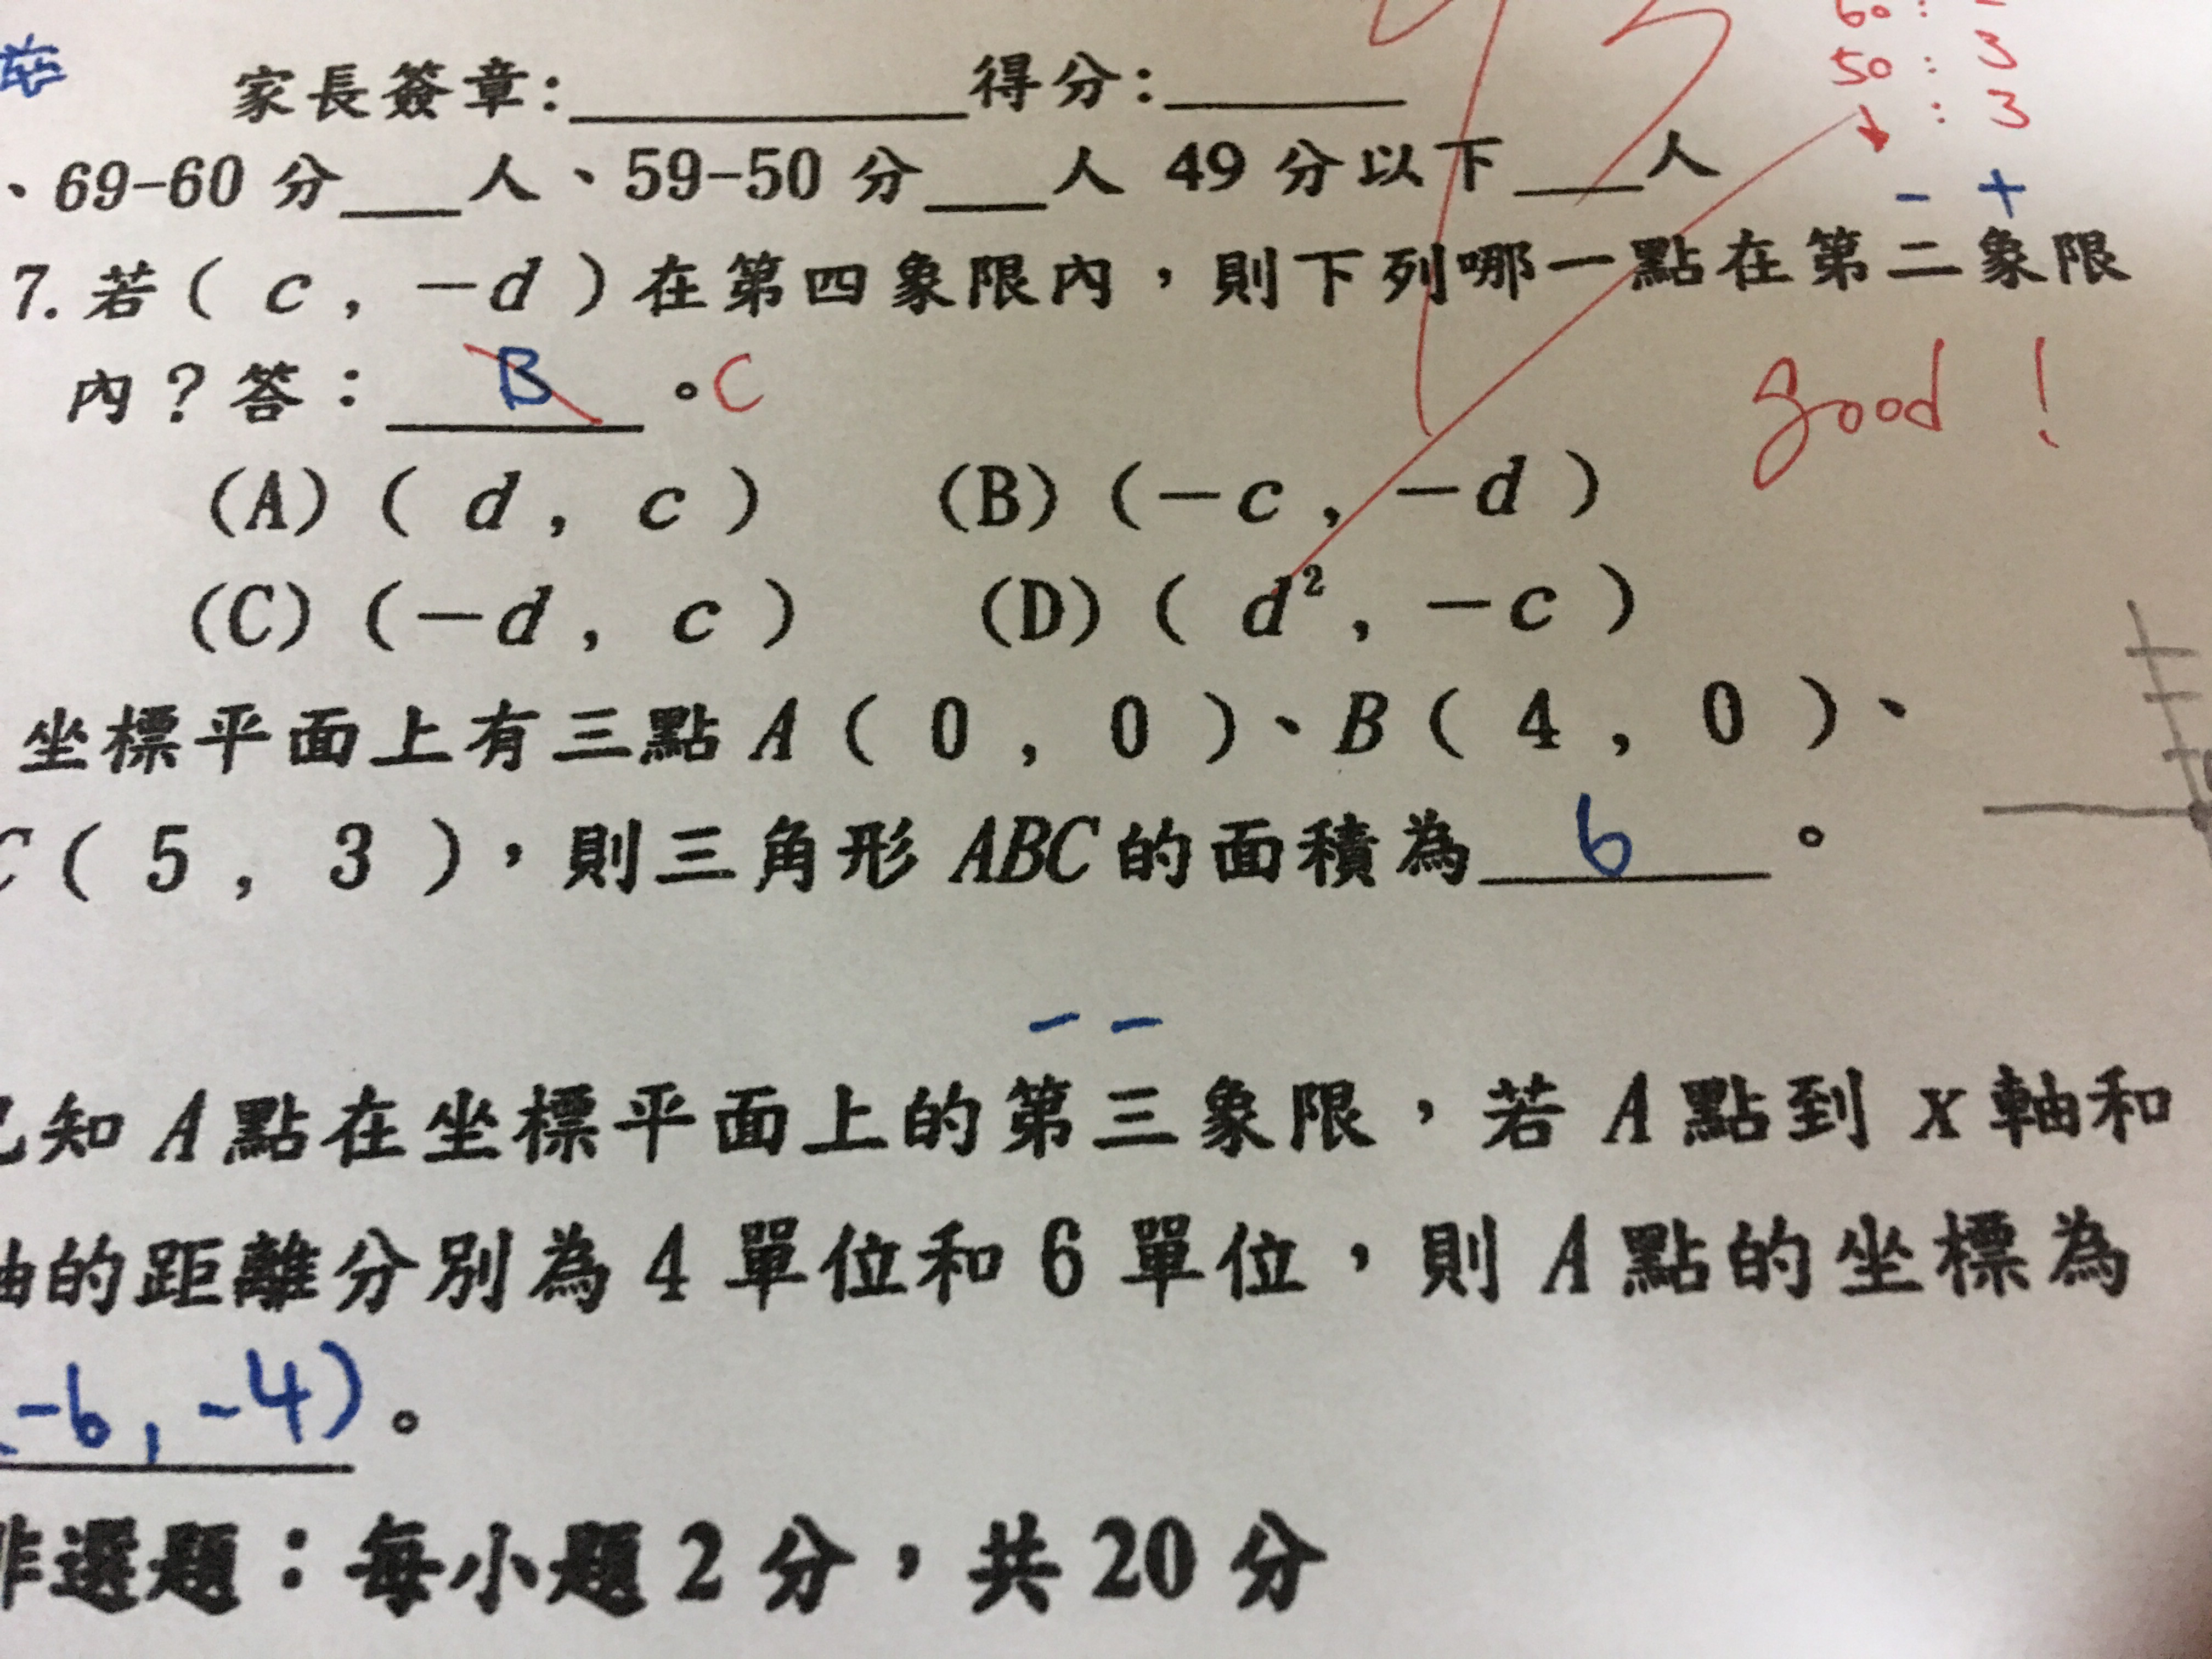 家長簽章:__________得分:______
60:
50:3
:3
、69-60 分___人、59-50 分___人 49 分以下___人
- +
7.若(c,-d)在第四象限內,則下列哪一點在第二象限
內?答:B。C
good!
(A)(d,c) (B)(-c,-d)
(C)(-d,c) (D)(d²,-c)
坐標平面上有三點A(0,0)、B(4,0)、
C(5,3),則三角形ABC的面積為6。
- -
已知A點在坐標平面上的第三象限,若A點到x軸和
軸的距離分別為4單位和6單位,則A點的坐標為
(-6,-4)。
非選題:每小題2分,共20分